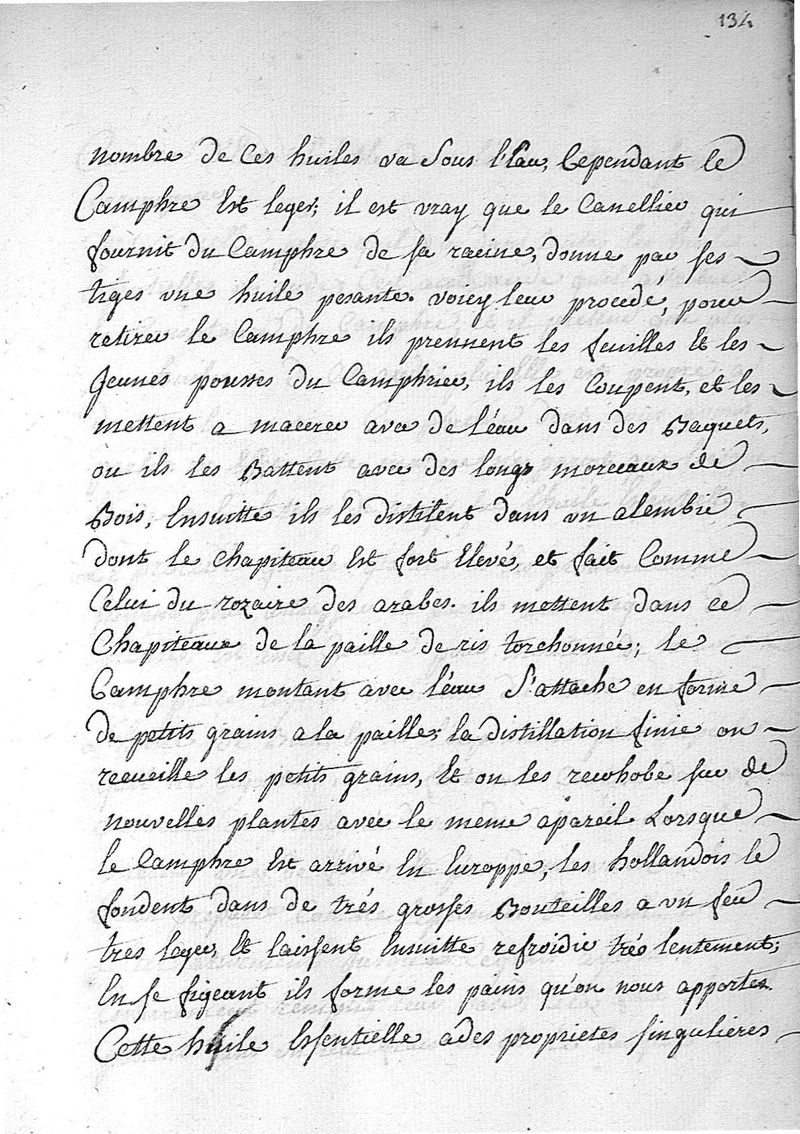 134
nombre de Ces huiles va Sous l'Eau, Cependant le
Camphre Est leger; il est vray que le Canellier qui
fournit du Camphre de sa racine, donne par ses
tiges vne huile pesante. voicy leur procedé, pour
retirer le Camphre ils prennent les feuilles Et les
Jeunes pousses du Camphrier, ils les Coupent, et les
mettent a macerer avec de l'éau dans des Baquets,
ou ils les Battent avec des longs morceaux de
Bois, Ensuitte ils les distilent dans vn alembic
dont le Chapiteau Est fort Elevé, et fait Comme
Celui du rozaire des arabes. ils mettent dans ce
Chapiteau de la paille de ris torchonnée; le
Camphre montant avec l'éau S'attache en forme
de petits grains a la paille; la distillation finie on
recueille les petits grains, Et on les recohobe sur de
nouvelles plantes avec le meme apareil Lorsque
le Camphre Est arrivé En Europpe, les hollandois le
fondent dans de trés grosses Bouteilles a vn feu
tres leger, Et laissent Ensuitte refroidir trés lentement;
En se figeant ils forme les pains qu'on nous apporte.
Cette huile Essentielle a des proprietes singulieres